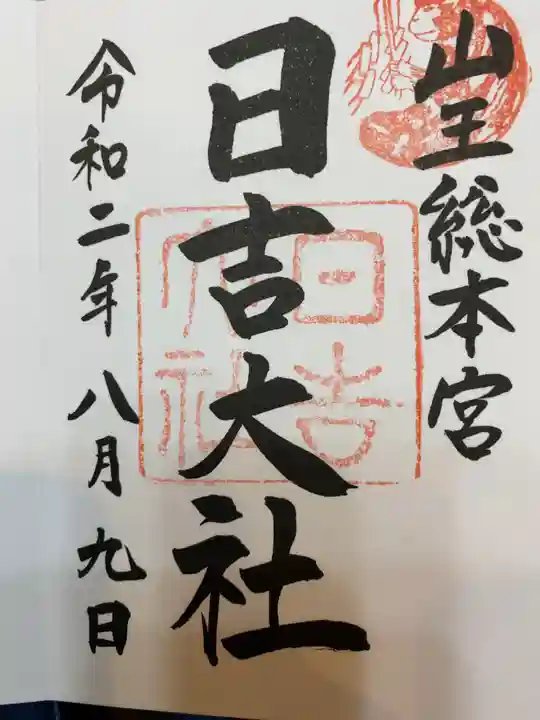 山王総本宮
日吉大社
日吉大社
令和二年八月九日